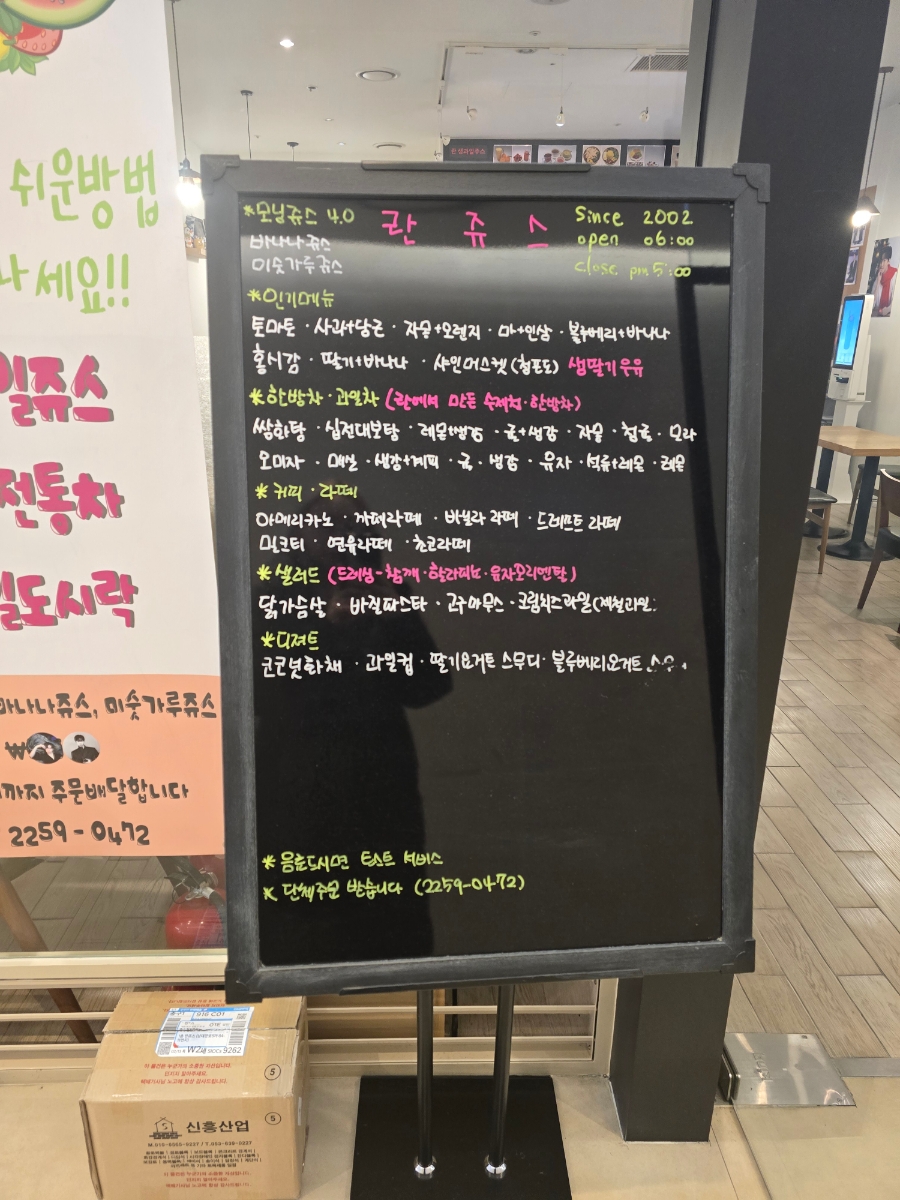 쉬운방법
나세요!!
일쥬스
전통차
일도시락
바나나쥬스, 미숫가루쥬스
₩
까지 주문배달합니다
2259-0472
*모닝쥬스 4.0
란 쥬 스
Since 2002
open 06:00
close pm 5:00
바나나쥬스
미숫가루쥬스
*인기메뉴
토마토 · 사과+당근 · 자몽+오렌지 · 마+인삼 · 블루베리+바나나
홍시감 · 딸기+바나나 · 샤인머스켓(청포도) 생딸기우유
*한방차·과일차 (란에서 만든 수제청·한방차)
쌍화탕 · 십전대보탕 · 레몬+생강 · 귤+생강 · 자몽 · 청귤 · 모과
오미자 · 매실 · 생강+계피 · 귤 · 생강 · 유자 · 석류+레몬 · 레몬
*커피 · 라떼
아메리카노 · 까페라떼 · 바닐라 라떼 · 디스프트 라떼
밀크티 · 연유라떼 · 초코라떼
*샐러드 (드레싱-참깨·할라피뇨·유자오리엔탈)
닭가슴살 · 바질파스타 · 고구마무스 · 크림치즈과일(제철과일
*디져트
코코넛화채 · 과일컵 · 딸기요거트 스무디 · 블루베리요거트
*음료드시면 토스트 서비스
*단체주문 받습니다 (2259-0472)
916 C01
W2
9282
신흥산업
5
5